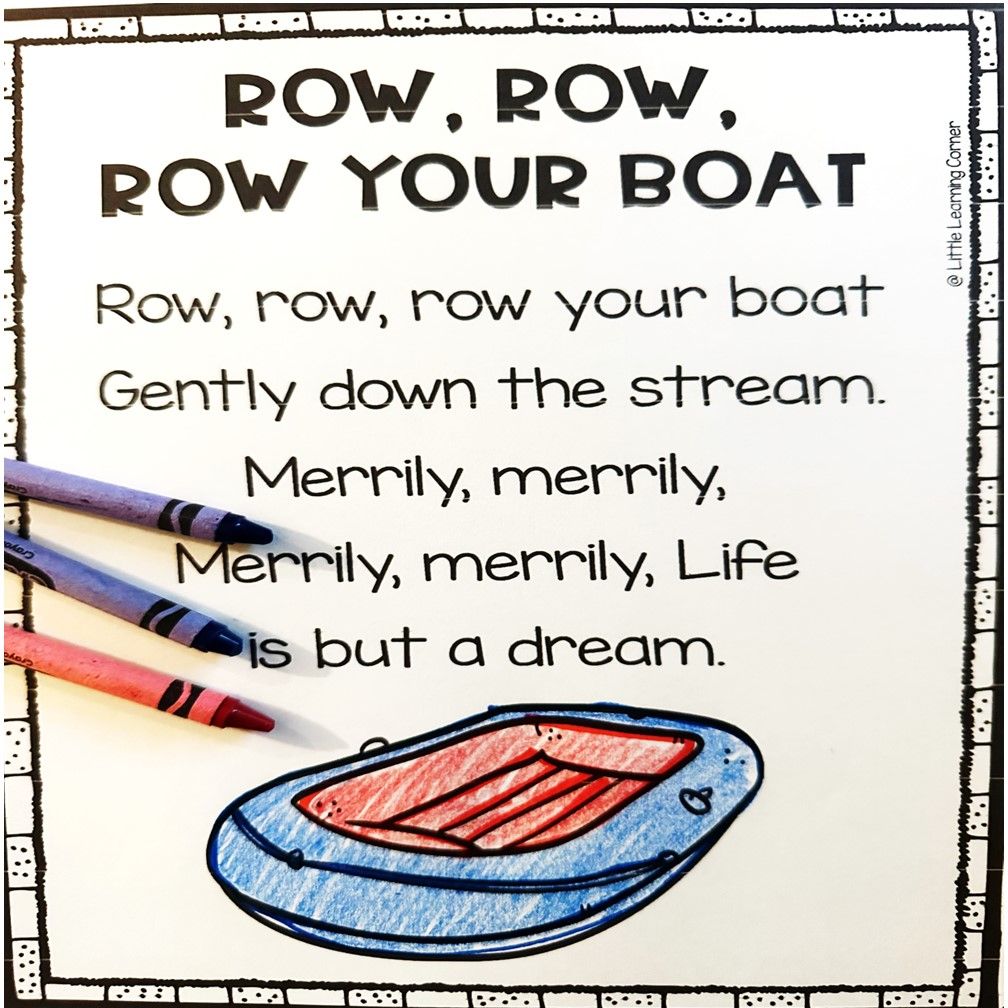 ROW, ROW,
ROW YOUR BOAT
@ Little Learning Corner
Row, row, row your boat
Gently down the stream.
Merrily, merrily,
Merrily, merrily, Life
is but a dream.